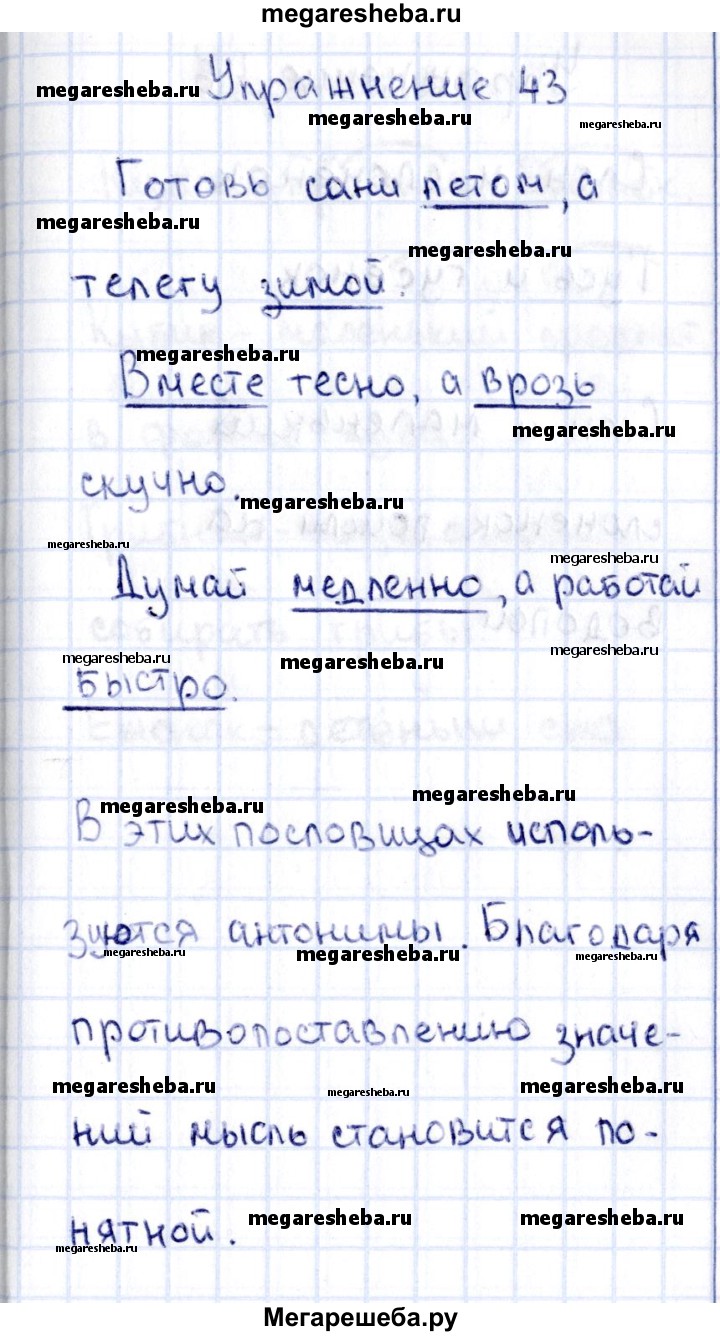 megaresheba.ru
megaresheba.ru
Упражнение 43
megaresheba.ru
megaresheba.ru
Готовь сани летом, а
megaresheba.ru
megaresheba.ru
телегу зимой.
megaresheba.ru
Вместе тесно, а врозь
megaresheba.ru
скучно.
megaresheba.ru
megaresheba.ru
megaresheba.ru
Думай медленно, а работай
megaresheba.ru
megaresheba.ru
megaresheba.ru
быстро.
megaresheba.ru
megaresheba.ru
В этих пословицах исполь-
зуются антонимы. Благодаря
megaresheba.ru
megaresheba.ru
megaresheba.ru
противопоставлению значе-
megaresheba.ru
megaresheba.ru
megaresheba.ru
ний мысль становится по-
megaresheba.ru
megaresheba.ru
нятной.
megaresheba.ru
Мегарешеба.ру